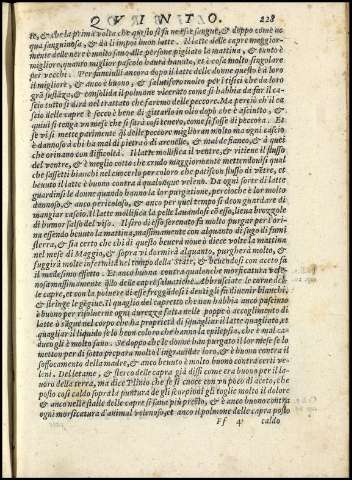 QVINTO. 228
re, & che la prima volta che questo si fa n'esse sangue, & doppo come ac
qua sanguinosa, & dà li impoi buon latte. Il latte delle capre maggior-
mente delle nere è molto sano alle persone pigliato la mattina, & tanto è
migliore, quanto miglior pascolo haurà hauuto, et è cosa molto singolare
per vecchi. Per fanciulli ancora dopò il latte delle donne questo è lo ro
il migliore, & anco è buono, & salutifero molto per tisici che loro da
grā sustāza, & consolida il polmone vlcerato come si habbia da far il ca-
scio tutto si dirà nel trattato che faremo delle peccore. Ma però ch'il ca
scio delle capre è secco bene di gittarlo in olio dapò che è asciutto, &
quiui si tenga vn mese che si farà così tenero, come si fosse di peccora. Et
se vi si mette parimente q̄l delle peccore migliorarà molto ma ogni cascio
è dannoso à chi hà mal di pietra di arenella, & mal de fianco, & à que
che orinano con difficoltà. Il latte mollifica il ventre, & ritiene il flusso
del ventre, & è meglio cotto che crudo maggiormente mettendoui qual
che sassetti bianchi nel cuocerlo per coloro che patiscon flusso di vētre, et
beuuto il latte è buono contra à qualunque veleno. Da ogni sorte di latte
guardinsi le donne quando hanno la lor purgatione, percioche è lor molto
dannoso, & anco pericoloso, & anco per quel tempo si deon guardare di
mangiar cascio. Al latte mollifica la pelle lauandosi cō esso, liena brozzole
di humor salso del viso. Il siro di esso serenato fa molto purgar per l'ori-
na essendo beuuto la mattina, massimamente con alquanto di sugo di fumi
sterra, & sia certo che chi di questo beuerà noue ò diece volte la mattina
nel mese di Maggio, & sopra vi dormirà alquanto, purgherà molto, &
fuggirà molte infermità nel tempo della State, & beuendosi con aceto fa
il medesimo effetto. Et anco buona contra qualonche morsicatura vele-
nosa massimamente q̄lla delle capre saluatiche. Abbrusciate le corna del
le capre, et con la poluere di esse freggādosi i denti gli fa diuenir bianchi,
& stringe le gēgiue. Il quaglio del capretto che non habbia anco pasciuto
è buono per risoluerre ogni durezza fatta nelle poppe è accoglimento di
latte ò sāgue nel corpo che ha proprietà di squagliar il latte quagliato, et
quagliar il liquido se lo beon coloro che hanno la epilepsia, che è mal ca-
duco gli è molto sano. Se doppo che le donne han purgato il lor mese se lo
metton per di sotto prepara molto l'ingrauidar loro, & è buono contra il
soffocamento della madre, & anco beuuto è molto buono contra certi ve
leni. Del letame, & sterco della capra già dissi come era buono per il la-
uoro della terra, ma dice Plinio che se si cuoce con vn poco di aceto, che
posto così caldo sopra la puntura de gli scorpioni gli toglie molto il dolore
& anco nelle stalle delle capre si sana più presto, & è anco buono contra
ogni morsicatura d'animal velenoso, et anco il polmone delle capra posto
Ff 4 caldo